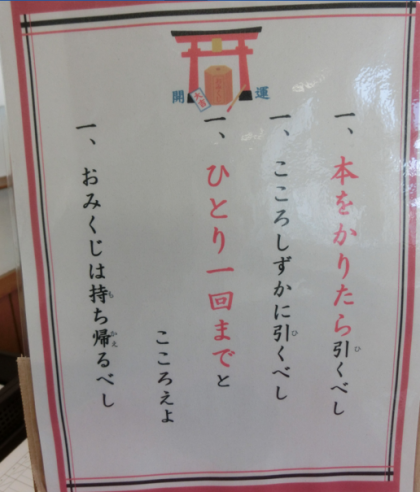 開運
大吉
一、本をかりたら引くべし
一、こころしずかに引くべし
一、ひとり一回までと
こころえよ
一、おみくじは持ち帰るべし